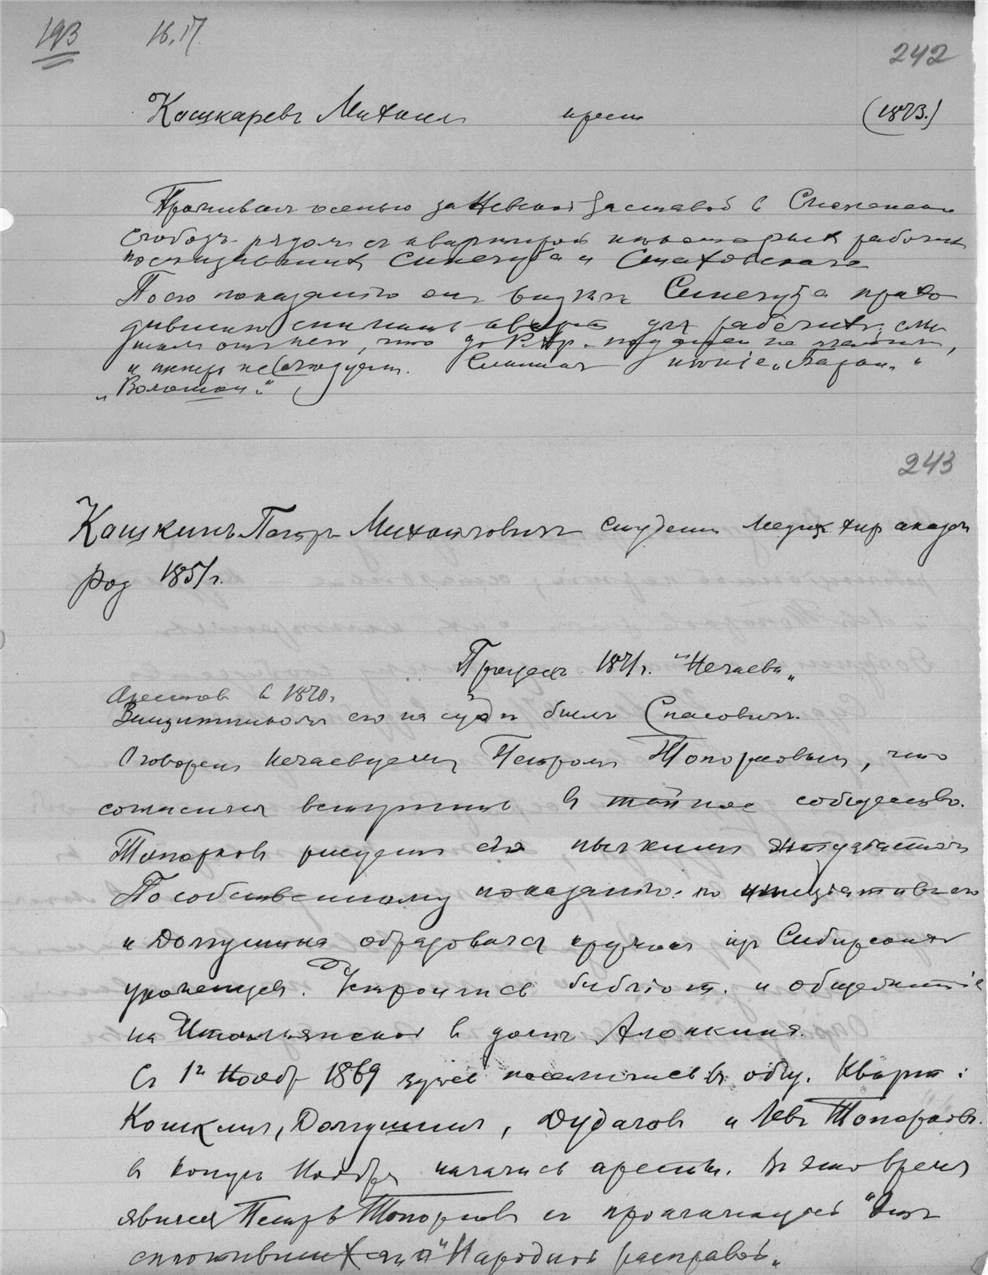 193 16.17. 242
Кашкаревъ Михаил крест (1873.)
Проживал осенью за Невской Заставой в Смоленской
слободе рядом с квартирой некоторых рабочих
посещавших Синегуба и Стаховского
По его показанию он видел Синегуба прихо
дившим снимать кварт для рабочих;
что до
и теперь не следует. Слышал "
"Волошен."
243
Кашкинъ Петръ Михайлович студент Медик хир академ
род 1851 г.
Процесс 1871 г. "Нечаева"
Арестов в 1870 г.
Защитником его на суде был Спасович.
Оговорен нечаевцем Петром Топорковым, что
согласился вступить в тайное сообщество.
Топорков рисует его пылким энтузиастом
По собственному показанию: по инициативе его
и Долгушина образовался кружок из Сибирских
уроженцев. Устроились библіот. и общежитіе
на Итальянской в доме Алонкина.
С 1го Ноябр 1869 здесь поселились в общ. кварт:
Кошкин, Долгушин, Дудоладов и Лев Топорков.
в конце Ноября начались аресты. В это время
явился Петръ Топорков с прокламацией "От
сплотившихся" и "Народной расправой"